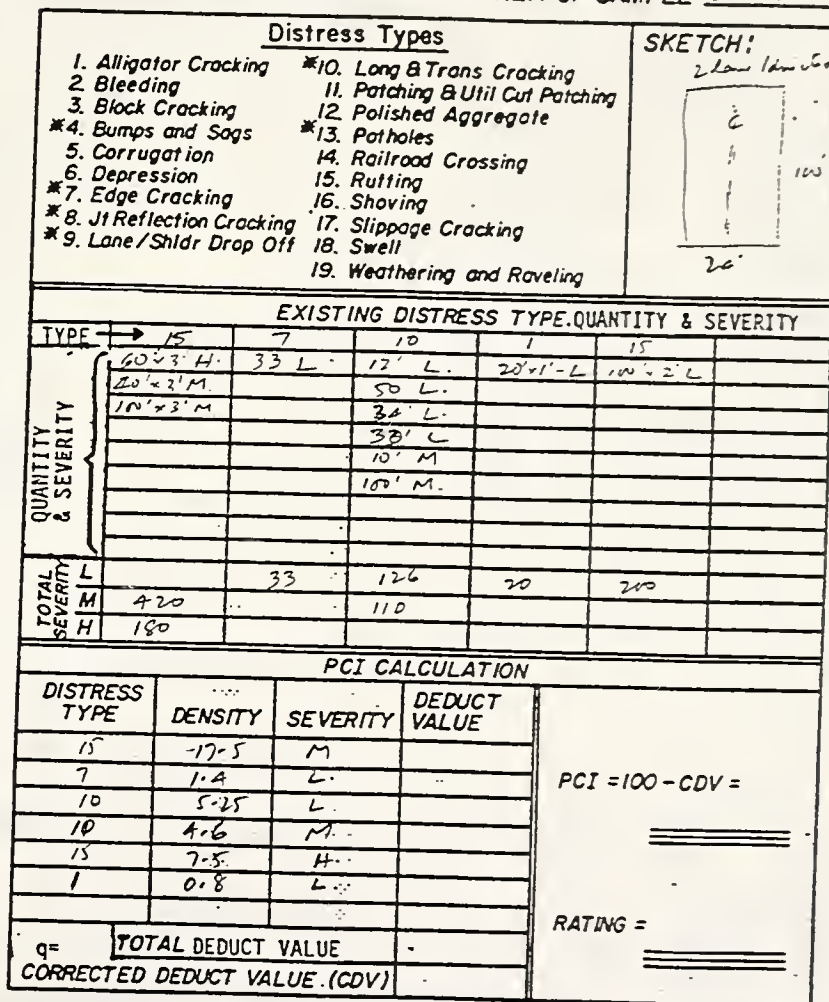 Distress Types
1. Alligator Cracking
2 Bleeding
3. Block Cracking
*4. Bumps and Sags
5. Corrugation
6. Depression
*7. Edge Cracking
*8. Jt Reflection Cracking
*9. Lane/Shldr Drop Off
*10. Long & Trans Cracking
11. Patching & Util Cut Patching
12. Polished Aggregate
*13. Potholes
14. Railroad Crossing
15. Rutting
16. Shoving
17. Slippage Cracking
18. Swell
19. Weathering and Raveling
SKETCH:
2 lane
100'
EXISTING DISTRESS TYPE.QUANTITY & SEVERITY
TYPE → 15 7 10 1 15
QUANTITY & SEVERITY
60'x3' H. 33 L 12' L. 20'x1'-L 100'x2' L
M. 50 L.
100'x3' M 34' L.
38' L
10' M
100' M.
TOTAL SEVERITY
L 33 126 20 200
M 420 110
H 180
PCI CALCULATION
DISTRESS TYPE DENSITY SEVERITY DEDUCT VALUE
15 17.5 M
7 1.4 L.
10 5.25 L
10 4.6 M
15 7.5 H
1 0.8 L
q= TOTAL DEDUCT VALUE
CORRECTED DEDUCT VALUE.(CDV)
PCI =100-CDV =
RATING =